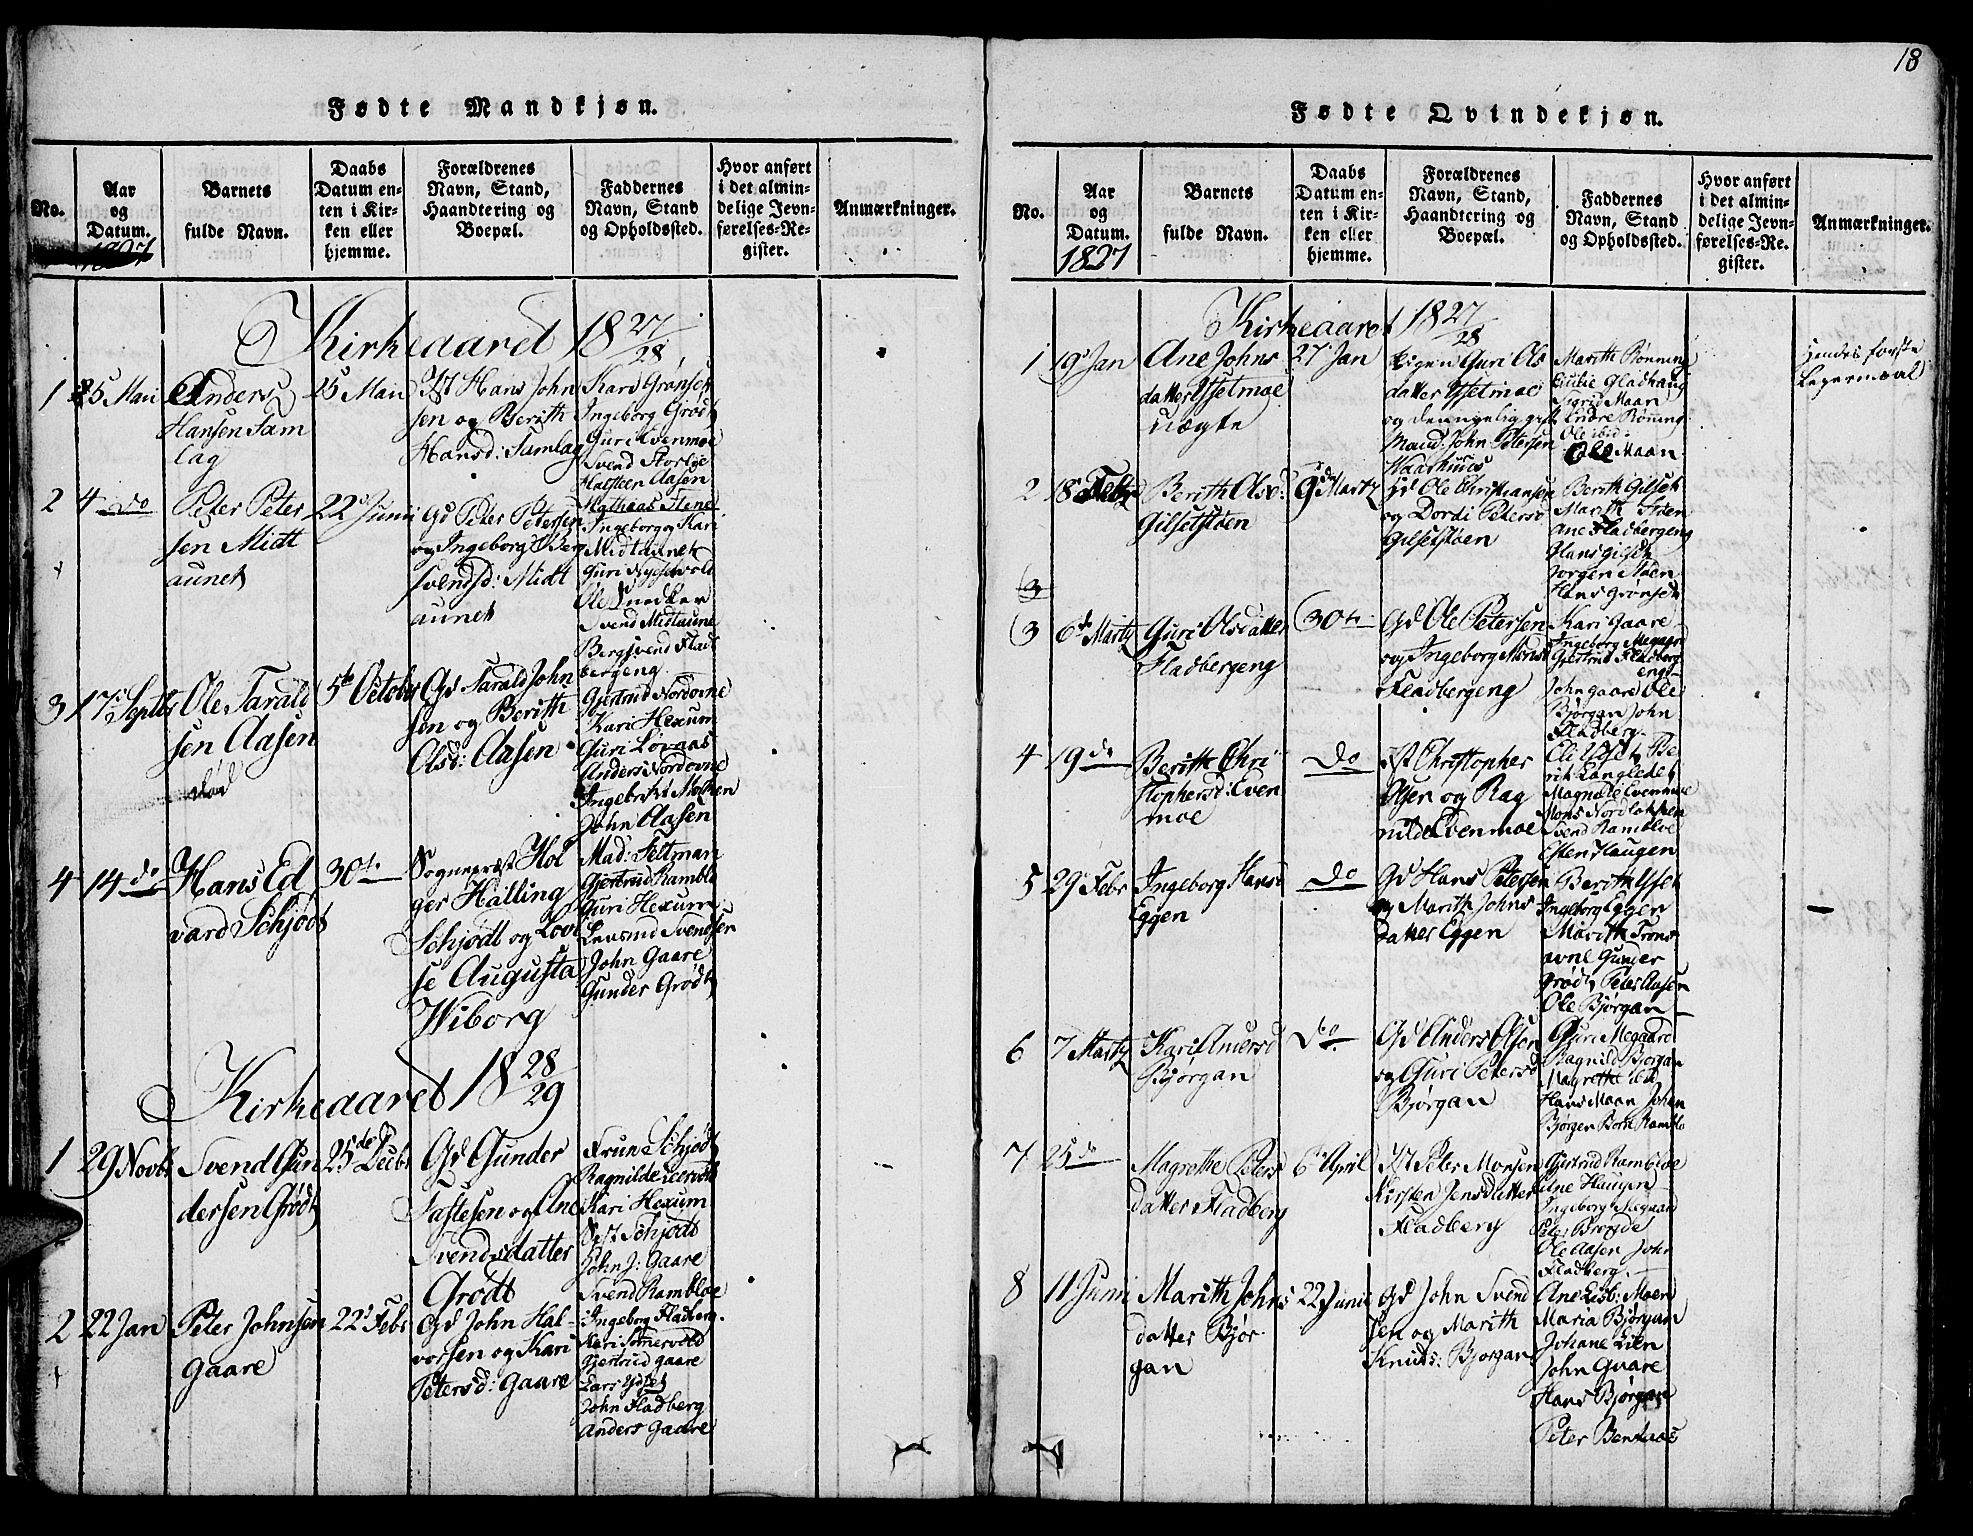 18
Fødte Mandkjøn.
No.
Aar
og
Datum.
1827
Barnets
fulde Navn.
Daabs
Datum en-
ten i Kir-
ken eller
hjemme.
Forældrenes
Navn, Stand,
Haandtering og
Boepæl.
Faddernes
Navn, Stand
og Opholdssted.
Hvor anført
i det almin-
delige Jevn-
førelses-Re-
gister.
Anmærkninger.
Kirkeaaret 18 27/28
1
25 Mai
Anders
Hansen Sam
lag
25 Mai
Hans John
sen og Berith
Hansd: Samlag
Kari Grønset
Ingeborg Grødt
Guri Evenmoe
Svend Storlie
Halsteen Aasen
2
4 do
Peter Peter
sen Midt
aunet
22 Junii
Gd Peter Petersen
og Ingeborg Berg
svendsd: Midt
aunet
Mathias Stene
Ingeborg og Kari
Midtaunet
Guri Nysetvold
Ole Snedker
Svend Midtaune
Bergsvend Flad
bergeng
3
17 Septbr
Ole Tarald
sen Aasen
død
5te October
Gd Tarald John
sen og Berith
Olsd: Aasen
Gjertrud Nordovne
Kari Hexum
Guri Løvnas
Anders Nordovne
Ingebrikt Moheen
John Aasen
4
14 do
Hans Ed
vard Schjødt
30t.
Sognepræst Hol
ger Halling
Schjødt og Lovi
se Augusta
Wiborg
Mad: Feltman
Gjertrud Ramblo
Guri Hexum
Svendsen
John Gaare
Gunder Grødt
Kirkeaaret 18 28/29
1
29 Novbr
Svend Gun
dersen Grødt
25de Decbr
Gd Gunder
Tastesen og Ane
Svendsdatter
Grødt
Frue Schjødt
Ragnilde
Kari Hexum
Schjødt
John J: Gaare
Svend Rambloe
2
22 Jan
Peter Johnsen
Gaare
22 Febr
Gd John Hal-
vorsen og Kari
Petersd: Gaare
Ingeborg Fladberg
Kari Somervold
Gjertrud Gaare
Lars Ydset
John Fladberg
Anders Gaare
Fødte Qvindekjøn.
No.
Aar
og
Datum.
1827
Barnets
fulde Navn.
Daabs
Datum en-
ten i Kir-
ken eller
hjemme.
Forældrenes
Navn, Stand,
Haandtering og
Boepæl.
Faddernes
Navn, Stand
og Opholdssted.
Hvor anført
i det almin-
delige Jevn-
førelses-Re-
gister.
Anmærkninger.
Kirkeaaret 18 27/28
1
19 Jan
Ane Johns
datter Ysetmoe
uægte
27 Jan
Pigen Guri Ols
datter Ysetmoe
og den nylig gift
Mand: John Petersen
Waarhuus
Marith Rønning
Gladhaug
Sigrid Maan
Endre Rønning
Ole ibid:
Ole Maan
Hendes første
Leiermaal
2
18 Febr
Berith Olsd:
Gilsetstøen
9d Martz
Gd Ole Christiansen
og Dordi Petersd
Gilsetstøen
Berith Gilset
Marith Støen
Ane Fladbergeng
Hans Gilset
Jørgen Støen
Hans Grønset
3
3
6te Martz
Guri Olsdatter
Fladbergeng
30t.
Gd Ole Petersen
og Ingeborg Monsd
Fladbergeng
Kari Gaare
Ingeborg Megaar
Gjertrud Fladberg
eng
John Gaare Ole
Bjørgan John
Fladberg.
4
19 de
Berith Chri
stophersd: Even
moe
Do
Christopher
Olsen og Rag
nilde Evenmoe
Eli Utset Be
rit Langledet
Magnele Evenmoe
Mons Nordløkken
Svend Rambloe
Esten Haugen
5
29 Febr
Ingeborg Hansd
Eggen
Do
Gd Hans Petersen
og Marith Johns
datter Eggen
Berith Yset
Ingeborg Eggen
Marith Trons
avne Gunder
Grødt Peter Aasen
Ole Bjørgan
6
7 Martz
Kari Andersd
Bjørgan
Do
Gd Anders Olsen
og Guri Petersd
Bjørgan
Guri Megaard
Ragnild Bjørgan
Magrethe ibd
Hans Maan Johan
Bjørgen Bort Ramblo
7
25 de
Magrethe Peters
datter Fladberg
6 April
Peter Monsen
Kirsten Jensdatter
Fladberg
Gjertrud Rambloe
Ane Haugen
Ingeborg Megaard
Peter Brægde
Ole Aasen John
Fladberg.
8
11 Junii
Marith Johns
datter Bjør
gan
22 Junii
Gd John Svend
sen og Marith
Knuds: Bjørgan
Ane Lisb: Moen
Maria Bjørgan
Johane Lien
John Gaare
Hans Bjørgan
Peter Benthaas